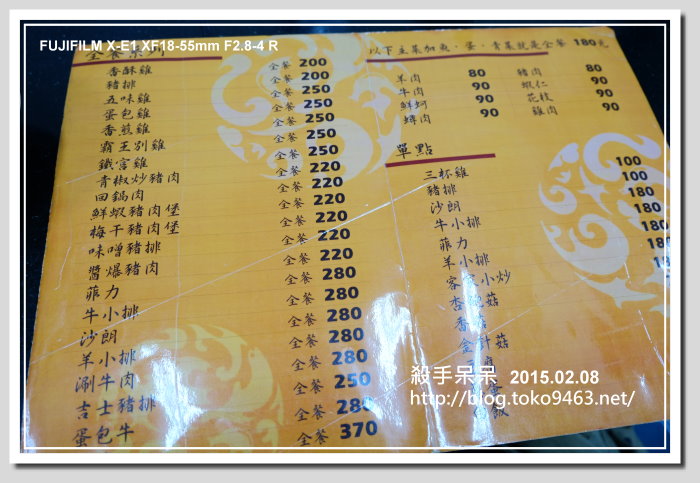 FUJIFILM X-E1 XF18-55mm F2.8-4 R
全餐系列
香酥雞 全餐 200
豬排 全餐 200
五味雞 全餐 250
蛋包雞 全餐 250
香煎雞 全餐 250
霸王別雞 全餐 250
鐵宮雞 全餐 250
青椒炒豬肉 全餐 220
回鍋肉 全餐 220
鮮蝦豬肉堡 全餐 220
梅干豬肉堡 全餐 220
味噌豬排 全餐 220
醬爆豬肉 全餐 220
菲力 全餐 280
牛小排 全餐 280
沙朗 全餐 280
羊小排 全餐 280
涮牛肉 全餐 250
吉士豬排 全餐 280
蛋包牛 全餐 370
以下主菜加魚、蛋、青菜就是全餐 180元
羊肉 80 豬肉 80
牛肉 90 蝦仁 90
鮮蚵 90 花枝 90
蟳肉 90 雞肉 90
單點
三杯雞 100
豬排 100
沙朗 180
牛小排 180
菲力 180
羊小排 180
客家小炒
杏鮑菇
香菇
金針菇
飯
殺手呆呆 2015.02.08
http://blog.toko9463.net/